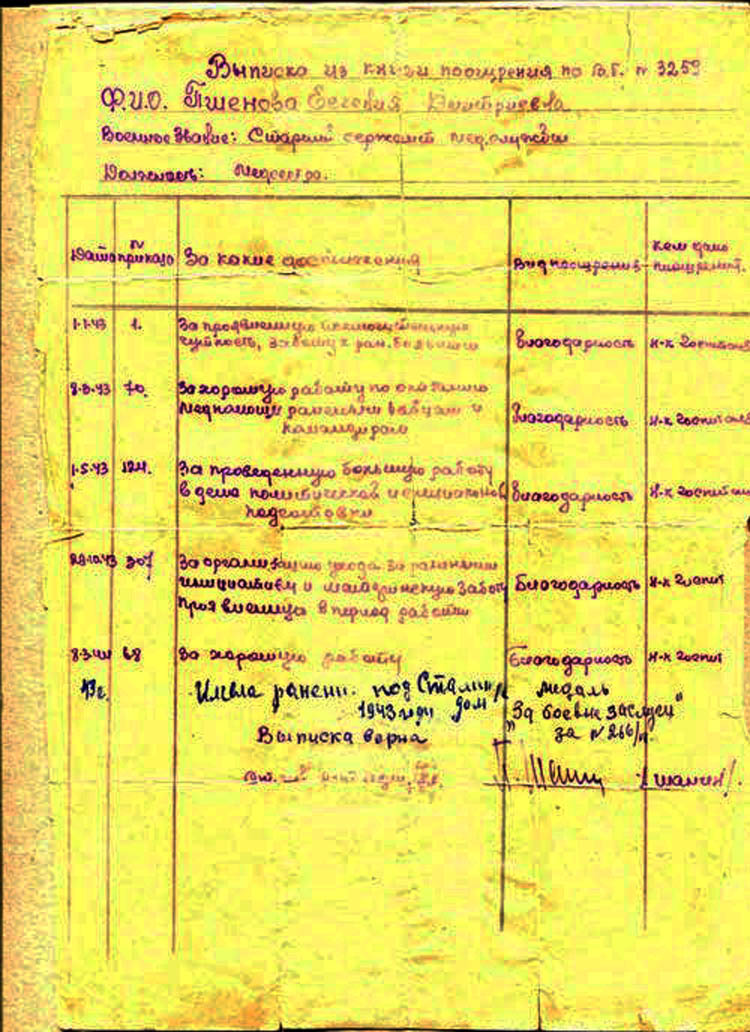 Выписка из книги поощрения по В.Г. № 3259
Ф.И.О. Пшенова Евгения Дмитриевна
Военное Звание: Старший сержант мед.службы
Должность: Медсестра.
Дата № приказа За какие достижения Вид поощрения Кем дано поощрение.
1-1-43 1. За проявленную
чуткость, заботу к ран. больным Благодарность Н-к госпиталя
8-3-43 70. За хорошую работу по оказанию
медпомощи раненым бойцам и
командирам Благодарность Н-к госпиталя
1-5-43 124. За проведенную большую работу
в деле политической и
подготовки Благодарность Н-к госпиталя
307 За организацию ухода за ранеными
инициативу и материнскую заботу
проявленную в период работы Благодарность Н-к госпит
68 За хорошую работу Благодарность Н-к госпит
43г. Имела ранени. под Сталин
1943 году
медаль
"За боевые заслуги"
за №
Выписка верна